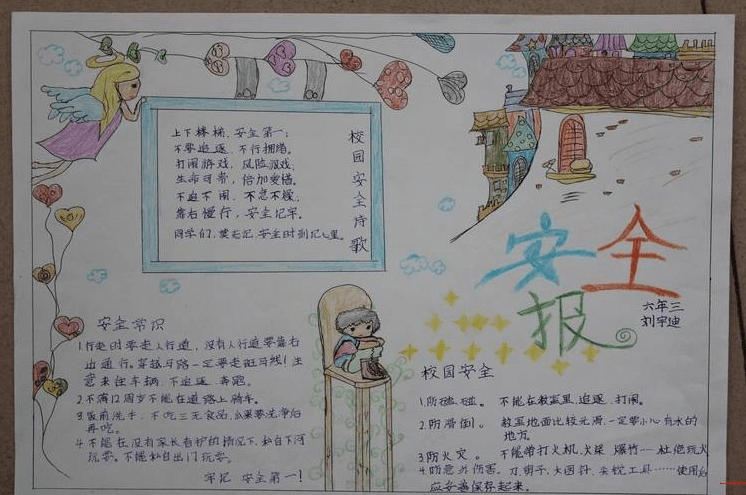 校园安全诗歌
上下楼梯、安全第一；
不要追逐、不行拥挤。
打闹游戏，风险游戏。
生命可贵，倍加爱惜。
不追不闹，不急不缓，
靠右慢行，安全记牢。
同学们，莫忘记，安全时刻记心里。
安全报
六年三
刘宇迪
安全常识
1.行走时要走人行道，没有人行道要靠右
边通行。穿越马路一定要走斑马线！注
意来往车辆、不追逐、奔跑。
2.不满12周岁不能在道路上骑车。
3.饭前洗手，不吃三无食品，瓜果要洗净后
再吃。
4.不能在没有家长看护的情况下，私自下河
玩耍。不能私自出门玩耍。
牢记 安全第一！
校园安全
1.防磕碰。 不能在教室里、追逐、打闹。
2.防滑倒。 教室地面比较光滑，一定要小心有水的
地方。
3.防火灾。 不能带打火机、火柴 爆竹…杜绝玩火
4.防意外伤害。刀、钉子、大图钉、尖锐工具……使用后
应妥善保存起来。